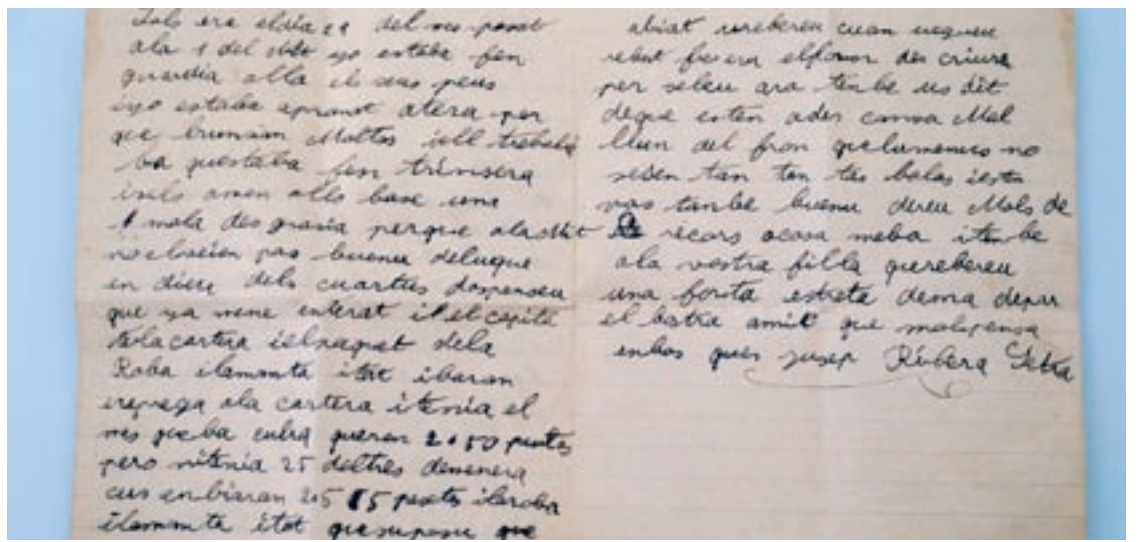 era eldia 21 del mes pasat
ala 1 del yo estaba fen
guardia alla els seus peus
iyo estaba apromt atera per
que brunsin Moltas iell trebalá
ba questaba fen trinsera
isils amen alls base una
mala des grasia perque alasMit
noelbaeien pas buenu delugue
en dieu dels cuartus dospenseu
que ya mene enterat itel capita
tela cartera ielpaquet dela
Roba ilamanta itot ibaran
ala cartera itenia el
mes queba cubra queran 2.50 pesetes
pero nitenia 25 deltres demenera
cus enbiaran 25 15 pesetes ilaroba
ilamanta itot quesuposu que
abiat urebereu cuan vegueu
rebut feseu elfabor des criura
per sebeu ara tanbe us dit
deque estem ades cansa Mol
lluen del fron quelumenus no
sesen tan tan tes balas iesta
nos tanbe buenu dereu Mols de
recors acasa meba itanbe
ala vostra filla querebereu
una forta estreta dema depar
el bostra amit que molipensa
enbos ques jusep Ribera